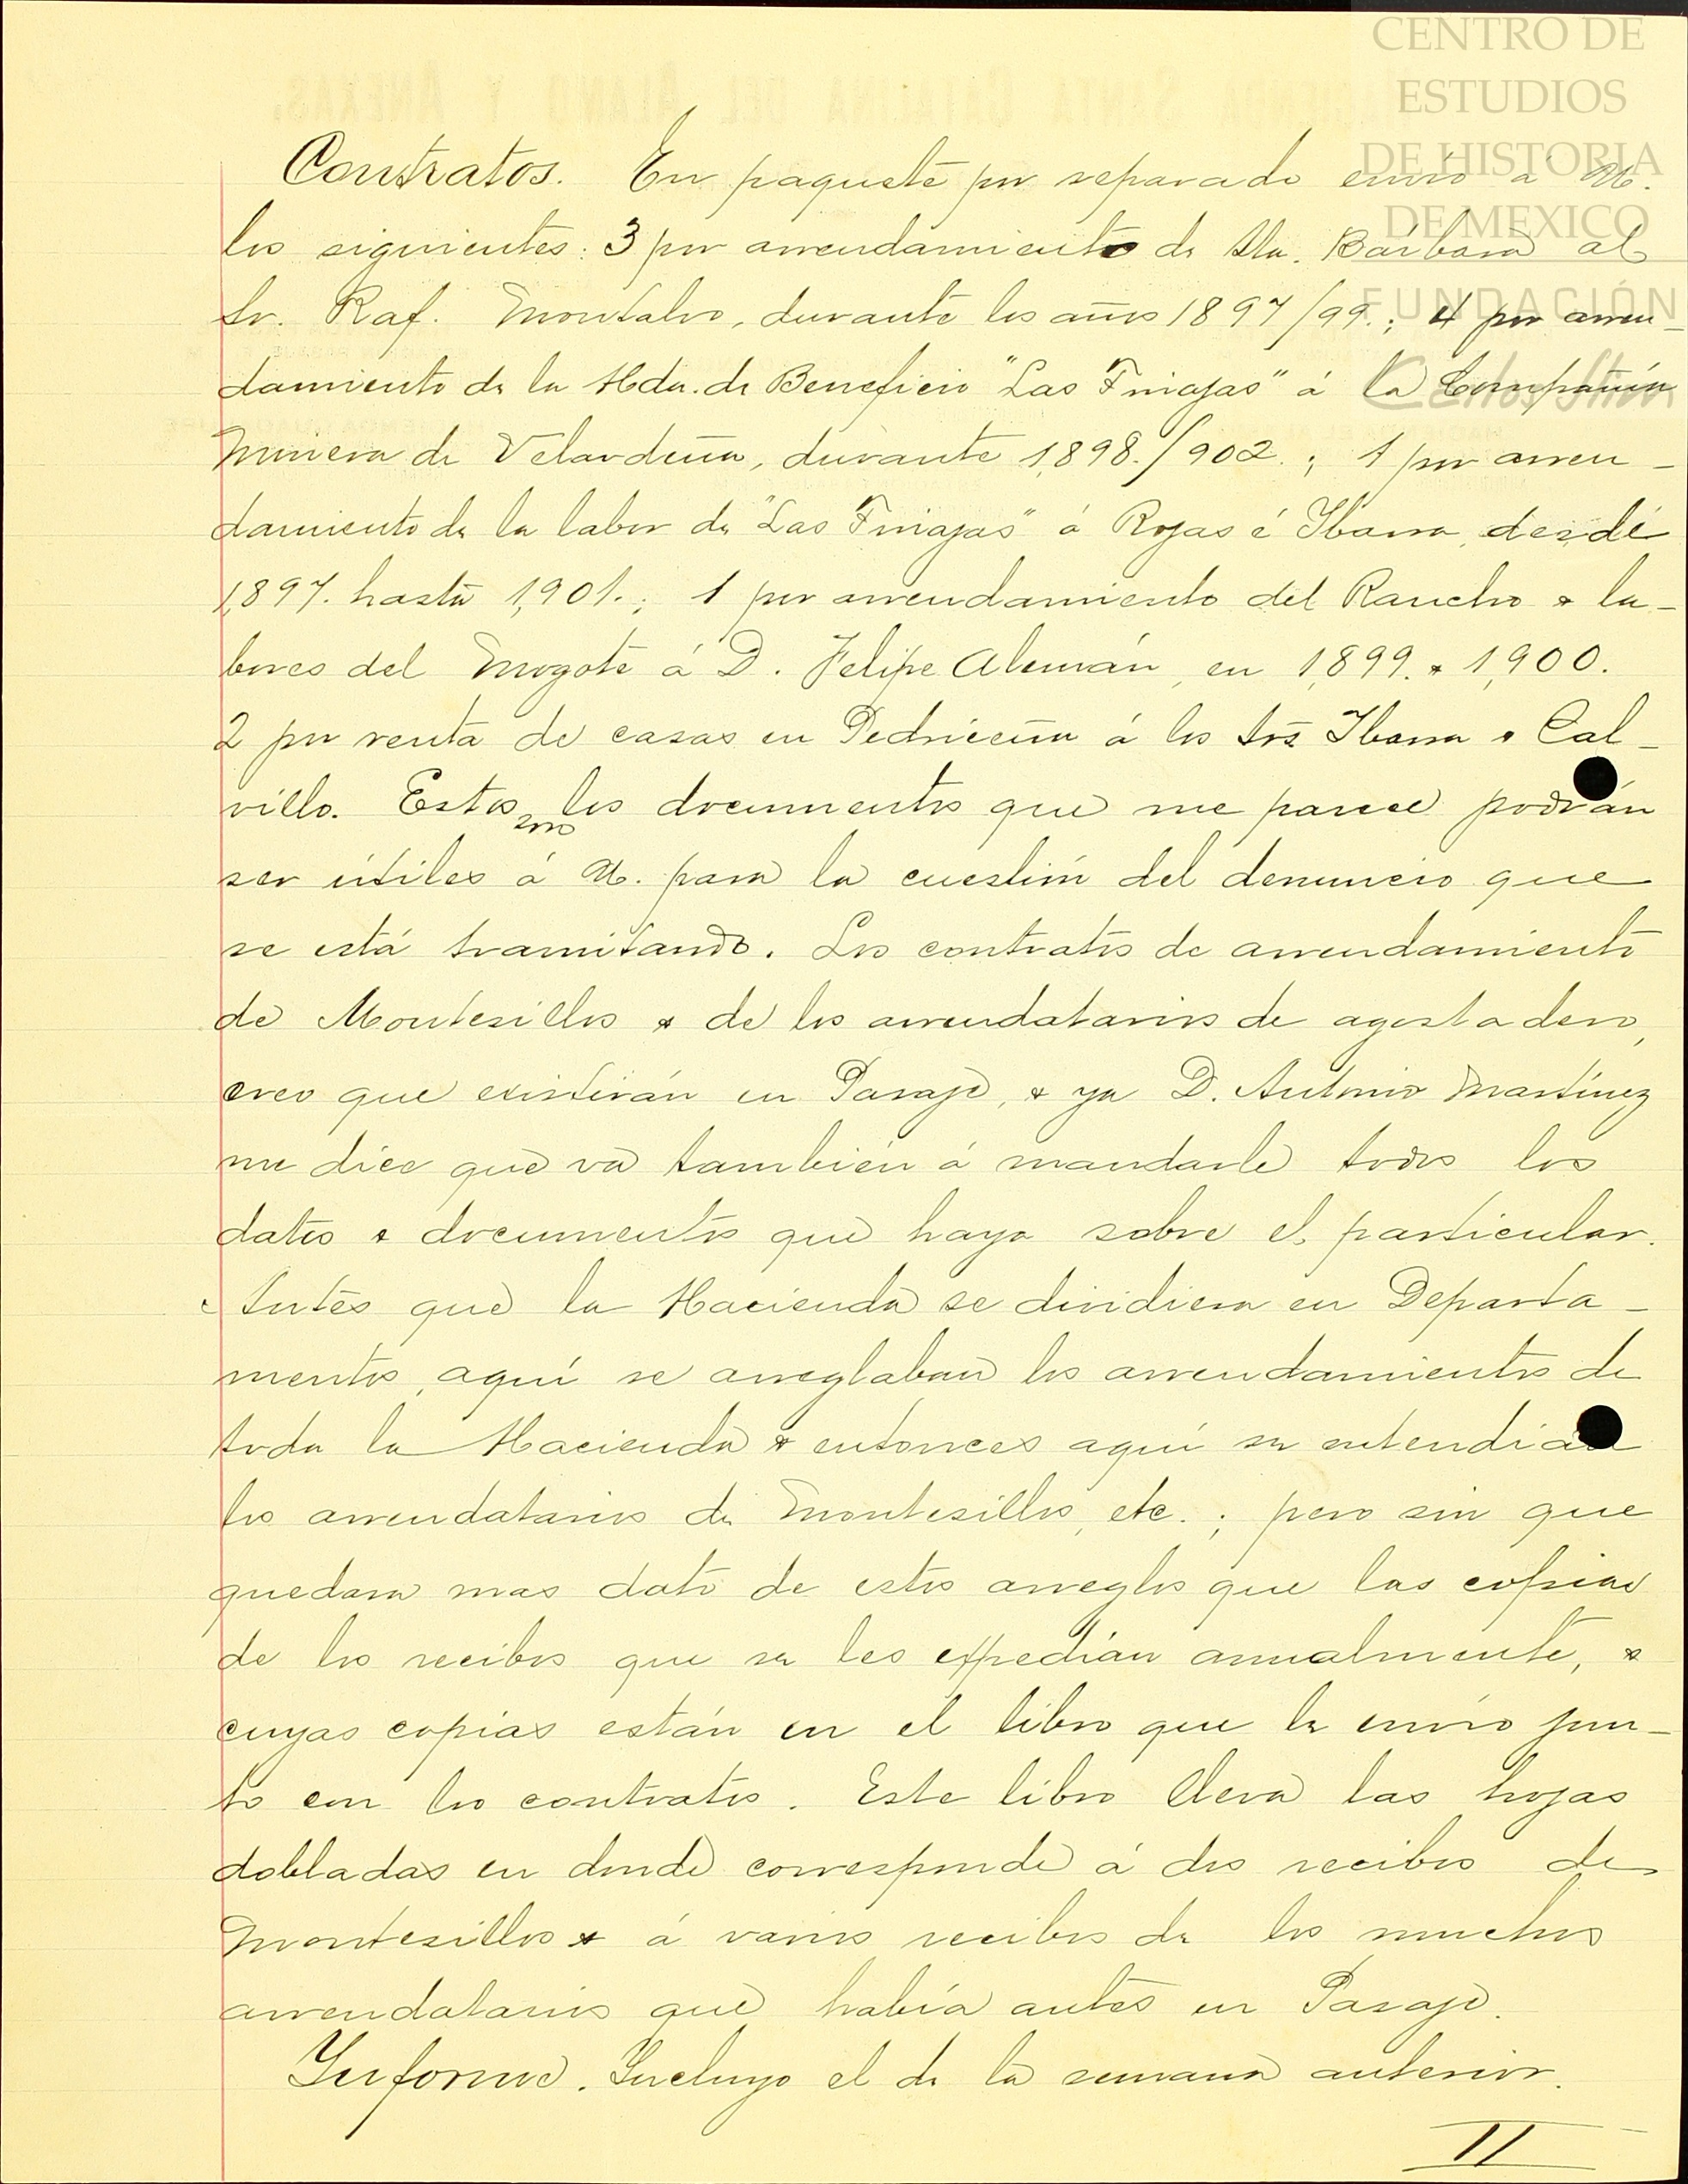 CENTRO DE
ESTUDIOS
DE HISTORIA
DE MEXICO
FUNDACIÓN
Carlos Slim
Contratos. En paquete por separado envío á U.
los siguientes: 3 por arrendamiento de Sta. Bárbara al
Sr. Raf. Montalvo, durante los años 1897/99.; 4 por arren-
damiento de la Hda. de Beneficio "Las Tinajas" á la Compañía
Minera de Velardeña, durante 1,898./902.; 1 por arren-
damiento de la labor de "Las Tinajas" á Rojas é Ibarra, desde
1,897. hasta 1,901.; 1 por arrendamiento del Rancho & la-
bores del Mogote á D. Felipe Alemán, en 1,899. & 1,900.
2 por renta de casas en Pedriceña á los Srs Ibarra & Cal-
villo. Estos son los documentos que me parece podrán
ser útiles á U. para la cuestión del denuncio que
se está tramitando. Los contratos de arrendamiento
de Montesillos & de los arrendatarios de agostadero,
creo que existirán en Pasaje, & ya D. Antonio Martínez
me dice que va también á mandarle todos los
datos & documentos que haya sobre el particular.
Antes que la Hacienda se dividiera en Departa-
mentos, aquí se arreglaban los arrendamientos de
toda la Hacienda & entonces aquí se entendían
los arrendatarios de Montesillos, etc.; pero sin que
quedara mas dato de estos arreglos que las copias
de los recibos que se les expedían anualmente, &
cuyas copias están en el libro que le envío jun-
to con los contratos. Este libro lleva las hojas
dobladas en donde corresponde á dos recibos de
Montesillos & á varios recibos de los muchos
arrendatarios que había antes en Pasaje.
Informe. Incluyo el de la semana anterior.
II